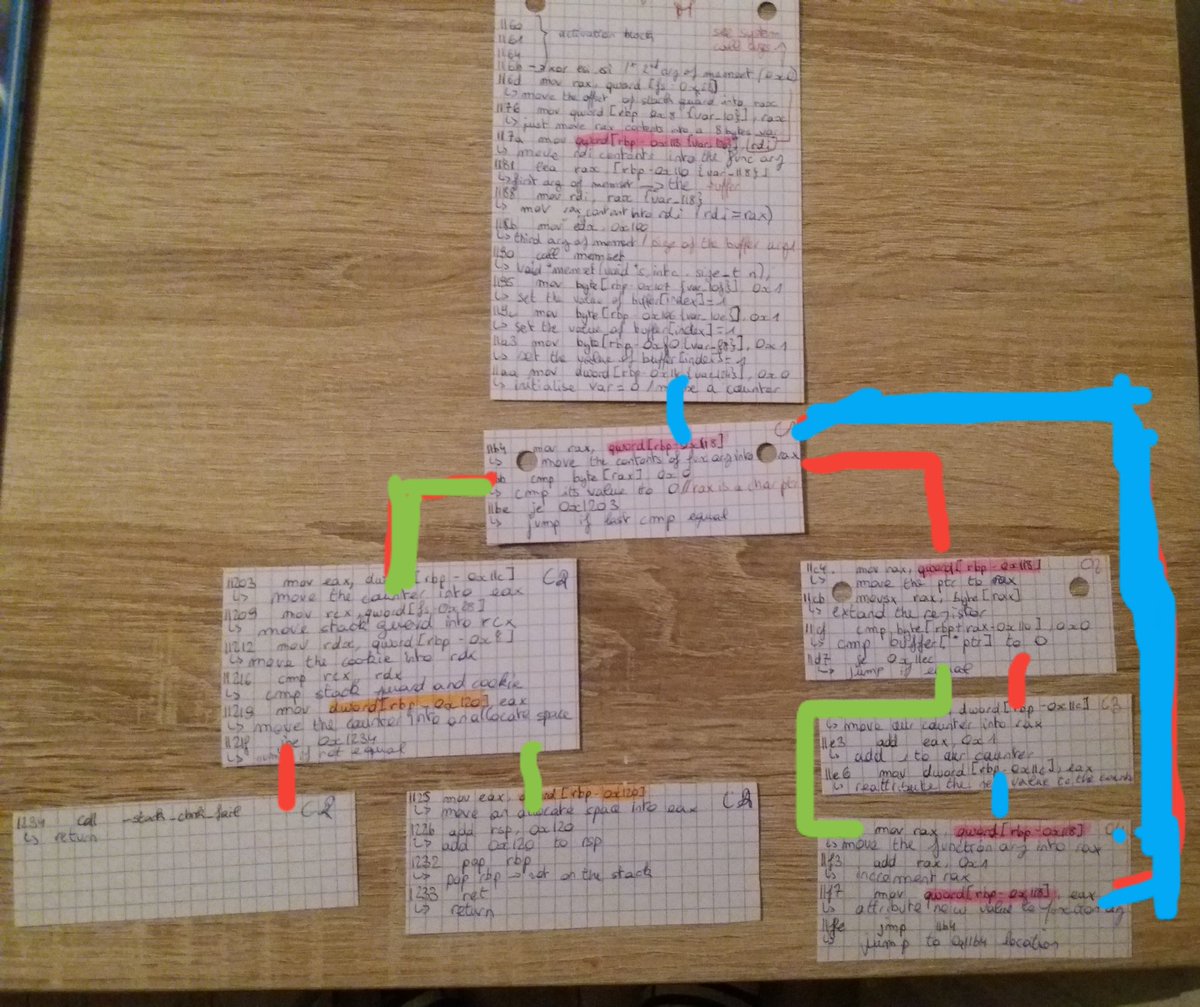 1160
1161 } activation block
see system call args
1164
116b → xor esi 1st 2nd arg of memset (0x0)
116d mov rax, qword [fs 0x28]
↳ move the offset of stack guard into rax
1176 mov qword [rbp 0x8 {var_10}], rax
↳ just move rax contents into a 8 bytes var
117a mov qword [rbp - 0x118 {var_120}], rdi
↳ move rdi contents into the func arg
1181 lea rax [rbp - 0x110 {var_118}]
↳ first arg of memset → the buffer
1188 mov rdi, rax {var_118}
↳ mov rax content into rdi (rdi = rax)
118b mov edx, 0x100
↳ third arg of memset / size of the buffer
1190 call memset
↳ void *memset(void *s, int c, size_t n);
1195 mov byte [rbp - 0x107 {var_10f}], 0x1
↳ set the value of buffer[index] = 1
119c mov byte [rbp 0x106 {var_10e}], 0x1
↳ set the value of buffer[index] = 1
11a3 mov byte [rbp - 0x80 {var_88}], 0x1
↳ set the value of buffer[index] = 1
11aa mov dword [rbp - 0x11c {var_124}], 0x0
↳ initialise var = 0 / a counter
11b4 mov rax, qword [rbp - 0x118]
↳ move the contents of func arg into rax
cmp byte [rax] 0x0
↳ cmp its value to 0 // rax is a char ptr
11be je 0x1203
↳ jump if last cmp equal
11203 mov eax, [rbp - 0x11c] C2
↳ move the counter into eax
11209 mov rcx, qword [fs 0x28]
↳ move stack guard into rcx
11212 mov rdx, qword [rbp - 0x8]
↳ move the cookie into rdx
11216 cmp rcx, rdx
↳ cmp stack guard and cookie
11219 mov dword [rbp - 0x120] eax
↳ move the counter into an allocate space
1121f jne 0x1234
↳ if not equal
11c4 mov rax, qword [rbp - 0x118]
↳ move the ptr to rax
11cb movsx rax, byte [rax]
↳ extand the register
11cf cmp byte [rbp + rax - 0x110], 0x0
↳ cmp buffer [*ptr] to 0
11d7 je 0x11ec
↳ jump if equal
dword [rbp - 0x11c] C3
↳ move our counter into rax
11e3 add eax, 0x1
↳ add 1 to our counter
11e6 mov dword [rbp - 0x11c], eax
↳ reattribute the new value to the
1234 call -stack_chk_fail C2
↳ return
1125 mov eax, [rbp - 0x120] C2
↳ move an allocate space into eax
122b add rsp, 0x120
↳ add 0x120 to rsp
1232 pop rbp
↳ pop rbp → on the stack
1233 ret
↳ return
mov rax, qword [rbp - 0x118]
↳ move the function arg into rax
11f3 add rax, 0x1
↳ increment rax
11f7 mov qword [rbp - 0x118], eax
↳ attribute new value to function arg
11fe jmp 11b4
↳ jump to 0x11b4 location